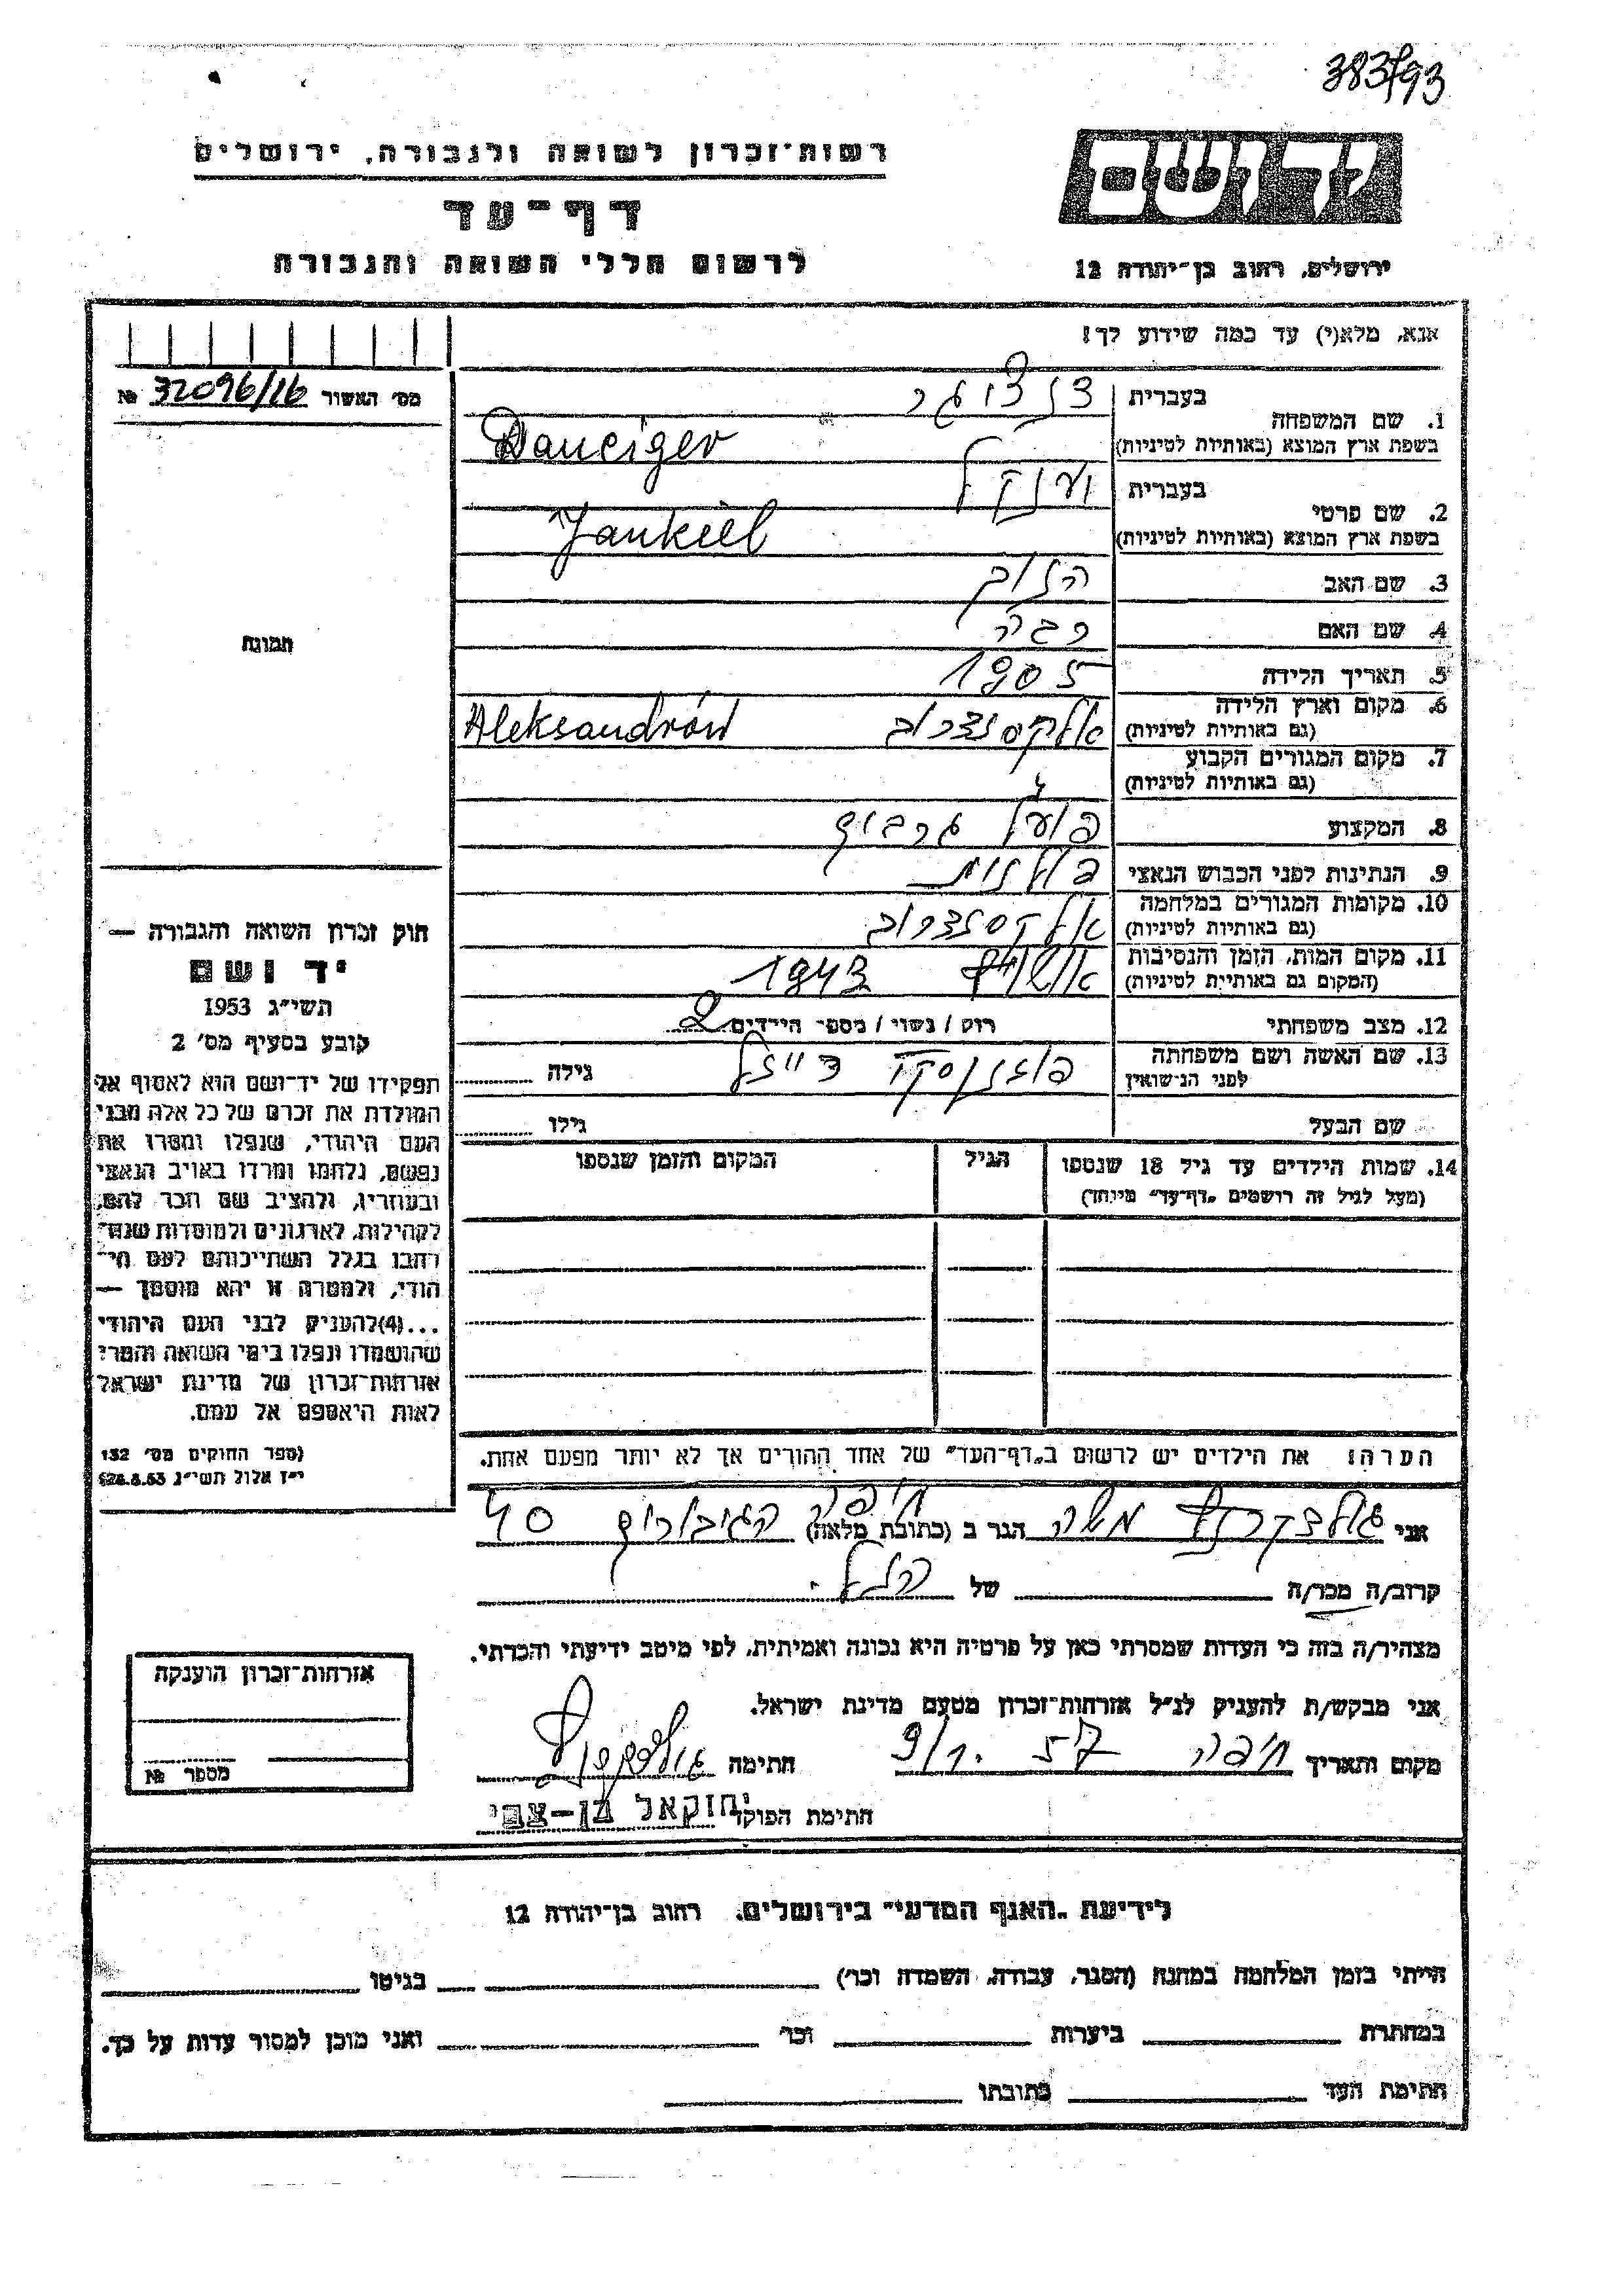 383/93
רשות־זכרון לשואה ולגבורה, ירושלים
יד ושם
דף־עד
לרשום חללי השואה והגבורה
ירושלים, רחוב בן־יהודה 12
אנא, מלא(י) עד כמה שידוע לך!
מס׳ האשור 32096/16 №
1. שם המשפחה בעברית דנציגר
בשפת ארץ המוצא (באותיות לטיניות) Danciger
2. שם פרטי בעברית יענקל
בשפת ארץ המוצא (באותיות לטיניות) Jankiel
3. שם האב
4. שם האם
5. תאריך הלידה 1905
6. מקום וארץ הלידה אלקסנדרוב Aleksandrów
(גם באותיות לטיניות)
7. מקום המגורים הקבוע
(גם באותיות לטיניות)
8. המקצוע פועל
9. הנתינות לפני הכבוש הנאצי פולנית
10. מקומות המגורים במלחמה אלקסנדרוב
(גם באותיות לטיניות)
11. מקום המות, הזמן והנסיבות 1943
(המקום גם באותיות לטיניות)
12. מצב משפחתי רוק / נשוי / מספר הילדים 2
13. שם האשה ושם משפחתה גילה
לפני הנשואין
שם הבעל גילו
14. שמות הילדים עד גיל 18 שנספו הגיל המקום והזמן שנספו
(מעל לגיל זה רושמים „דף־עד״ מיוחד)
הערה: את הילדים יש לרשום ב„דף־העד״ של אחד ההורים אך לא יותר מפעם אחת.
תמונה
חוק זכרון השואה והגבורה —
יד ושם
תשי״ג 1953
קובע בסעיף מס׳ 2
תפקידו של יד־ושם הוא לאסוף אל
המולדת את זכרם של כל אלה מבני
העם היהודי, שנפלו ומסרו את
נפשם, נלחמו ומרדו באויב הנאצי
ובעוזריו, ולהציב שם וזכר להם,
לקהילות, לארגונים ולמוסדות שנח־
רבו בגלל השתייכותם לעם הי־
הודי, ולמטרה זו יהא מוסמך —
...(4) להעניק לבני העם היהודי
שהושמדו ונפלו בימי השואה והמרי
אזרחות־זכרון של מדינת ישראל
לאות היאספם אל עמם.
(ספר החוקים מס׳ 132
י״ז אלול תשי״ג 28.8.53)
אני משה הגר ב (כתובת מלאה) חיפה 40
קרוב/ה מכר/ה של הנ״ל
מצהיר/ה בזה כי העדות שמסרתי כאן על פרטיה היא נכונה ואמיתית, לפי מיטב ידיעתי והכרתי.
אני מבקש/ת להעניק לנ״ל אזרחות־זכרון מטעם מדינת ישראל.
מקום ותאריך חיפה 9/1. 57 חתימה
חתימת הפוקד יחזקאל בן-צבי
אזרחות־זכרון הוענקה
מספר №
לידיעת „האגף המדעי״ בירושלים, רחוב בן־יהודה 12
הייתי בזמן המלחמה במחנה (הסגר, עבודה, השמדה וכו׳) בגיטו
במחתרת ביערות וכו׳ ואני מוכן למסור עדות על כך.
חתימת העד כתובתו